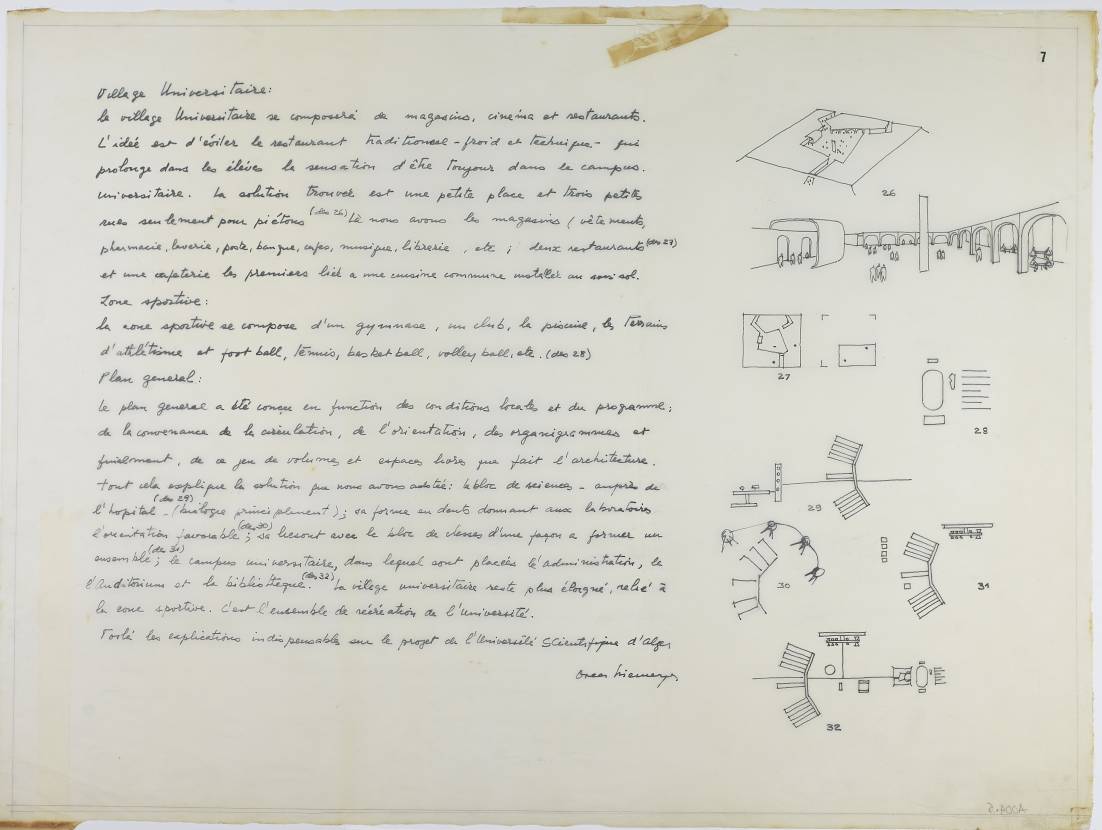 7
Village Universitaire:
le village Universitaire se composera de magasins, cinéma et restaurants.
L'idée est d'éviter le restaurant traditionnel - froid et technique - qui
prolonge dans les élèves la sensation d'être toujour dans le campus.
universitaire. La solution trouvée est une petite place et trois petites
rues seulement pour piétons (des 26) Là nous avons les magasins (vêtements,
pharmacie, laverie, poste, banque, cafes, musique, librerie, etc; deux restaurants (des 27)
et une cafeterie les premiers liés a une cuisine commune installée au sous sol.
Zone sportive:
la zone sportive se compose d'un gymnase, un club, la piscine, les terrains
d'athlétisme et foot ball, tennis, basket ball, volley ball, etc. (des 28)
Plan general:
Le plan general a été conçu en function des conditions locales et du programme;
de la convenance de la circulation, de l'orientation, des organigrammes et
finalement, de ce jeu de volumes et espaces libres que fait l'architecture.
Tout cela esplique la solution que nous avons adotée: le bloc de sciences - auprès de
l'hopital - (des 29) (biologie principlement); sa forme en dents donnant aux laboratoires
l'orientation favorable (des 30); sa liesont avec le bloc de classes d'une façon a former un
ensemble (des 31); le campus universitaire, dans lequel sont placées l'administration, le
l'Auditorium et la bibliothèque. (des 32) La village universitaire reste plus éloigné, relié à
la zone sportive. C'est l'ensemble de récréation de l'Université.
Voilé les explications indispensables sur le projet de l'Université Scientifique d'Alger
Oscar Niemeyer
26
27
28
29
30
31
32